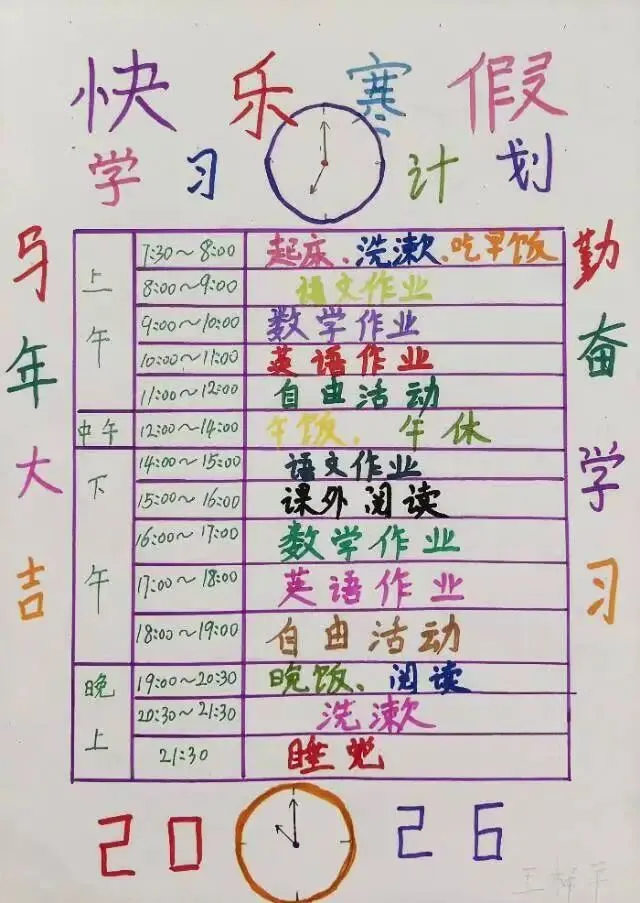 快乐寒假
学习计划
马年大吉
勤奋学习
上午
7:30~8:00 起床、洗漱、吃早饭
8:00~9:00 语文作业
9:00~10:00 数学作业
10:00~11:00 英语作业
11:00~12:00 自由活动
中午
12:00~14:00 午饭、午休
下午
14:00~15:00 语文作业
15:00~16:00 课外阅读
16:00~17:00 数学作业
17:00~18:00 英语作业
18:00~19:00 自由活动
晚上
19:00~20:30 晚饭、阅读
20:30~21:30 洗漱
21:30 睡觉
2026